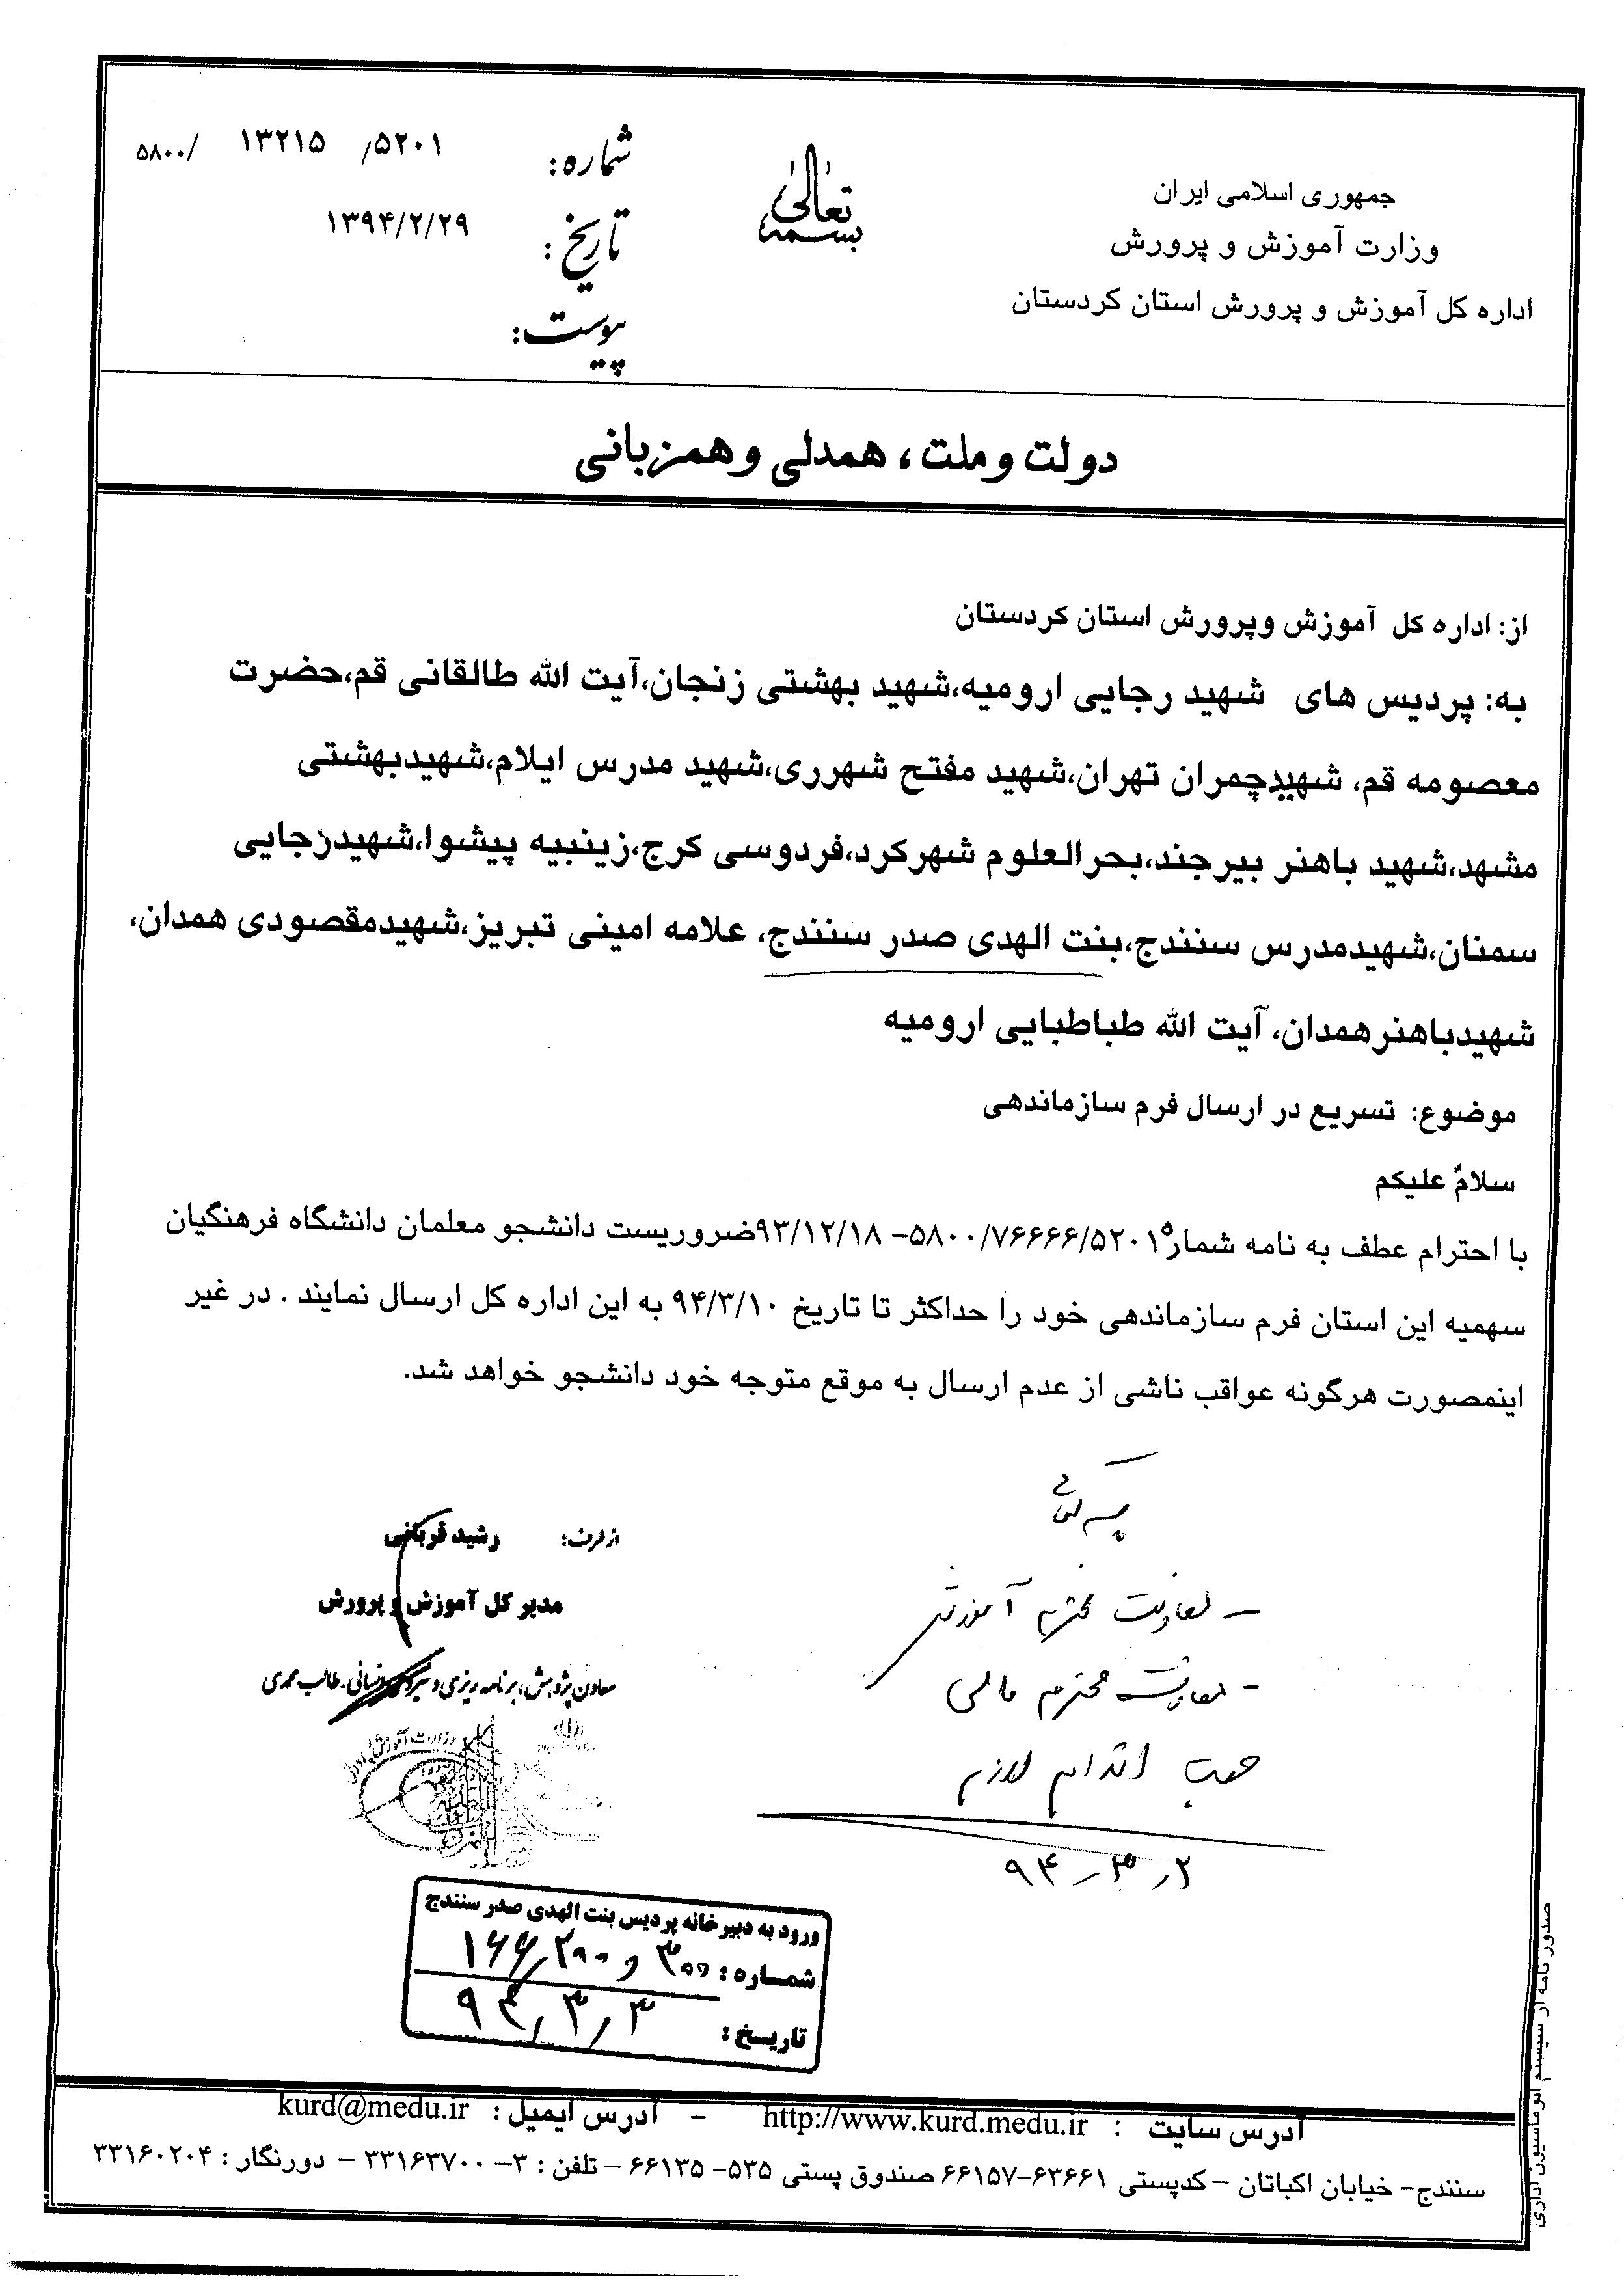 جمهوری اسلامی ایران
وزارت آموزش و پرورش
اداره کل آموزش و پرورش استان کردستان
بسمه تعالیٰ
شماره: ۵۲۰۱/ ۱۳۲۱۵ /۵۸۰۰
تاریخ: ۱۳۹۴/۲/۲۹
پیوست:
دولت و ملت ، همدلی و همزبانی
از: اداره کل آموزش وپرورش استان کردستان
به: پردیس های شهید رجایی ارومیه،شهید بهشتی زنجان،آیت الله طالقانی قم،حضرت
معصومه قم، شهیدچمران تهران،شهید مفتح شهرری،شهید مدرس ایلام،شهیدبهشتی
مشهد،شهید باهنر بیرجند،بحرالعلوم شهرکرد،فردوسی کرج،زینبیه پیشوا،شهیدرجایی
سمنان،شهیدمدرس سنندج،بنت الهدی صدر سنندج، علامه امینی تبریز،شهیدمقصودی همدان،
شهیدباهنرهمدان، آیت الله طباطبایی ارومیه
موضوع: تسریع در ارسال فرم سازماندهی
سلامٌ علیکم
با احترام عطف به نامه شماره۵۸۰۰/۷۶۶۶۶/۵۲۰۱- ۹۳/۱۲/۱۸ضروریست دانشجو معلمان دانشگاه فرهنگیان
سهمیه این استان فرم سازماندهی خود را حداکثر تا تاریخ ۹۴/۳/۱۰ به این اداره کل ارسال نمایند . در غیر
اینمصورت هرگونه عواقب ناشی از عدم ارسال به موقع متوجه خود دانشجو خواهد شد.
از طرف: رشید قربانی
مدیر کل آموزش و پرورش
معاون پژوهش، برنامه ریزی و نیروی انسانی-طالب محمدی
– معاونت محترم آموزشی
- معاونت محترم مالی
جهت اقدام لازم
۹۴/۳/۲
ورود به دبیرخانه پردیس بنت الهدی صدر سنندج
شماره: ۱۶۶/۲۰۰ و ۳۰۰
تاریخ: ۹۴/۳/۳
آدرس سایت : http://www.kurd.medu.ir – آدرس ایمیل : kurd@medu.ir
سنندج- خیابان اکباتان – کدپستی ۶۳۶۶۱-۶۶۱۵۷ صندوق پستی ۵۳۵- ۶۶۱۳۵ – تلفن : ۳- ۳۳۱۶۳۷۰۰ – دورنگار : ۳۳۱۶۰۲۰۴
صدور نامه از سیستم اتوماسیون اداری